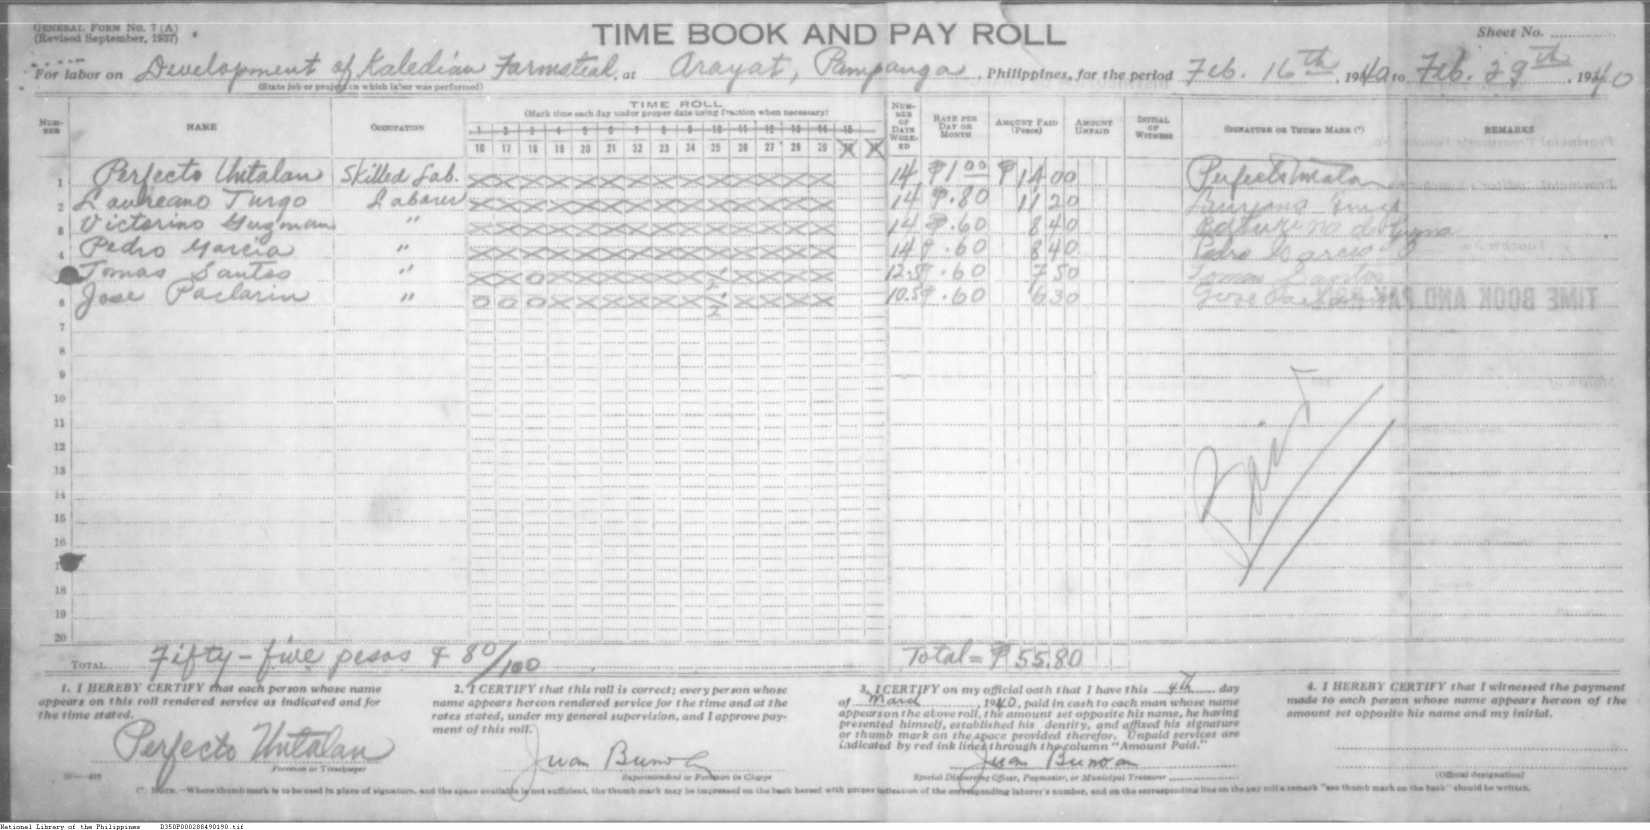 GENERAL FORM NO. 7 (A)
(Revised September, 1937)
TIME BOOK AND PAY ROLL
Sheet No.
For labor on Development of Kaledian Farmstead, at Arayat, Pampanga, Philippines, for the period Feb. 16th, 1940 to Feb. 29th, 1940
(State job or project on which labor was performed)
NUMBER NAME OCCUPATION TIME ROLL NUMBER OF DAYS WORKED RATE PER DAY OR MONTH AMOUNT PAID (Pesos) AMOUNT UNPAID INITIAL OF WITNESS SIGNATURE OR THUMB MARK (*) REMARKS
(Mark time each day under proper date using fraction when necessary)
1 2 3 4 5 6 7 8 9 10 11 12 13 14 15
16 17 18 19 20 21 22 23 24 25 26 27 28 29
1 Perfecto Untalan Skilled Lab. X X X X X X X X X X X X X X 14 ₱1.00 ₱14 00 Perfecto Untalan
2 Laureano Turgo Laborer X X X X X X X X X X X X X X 14 ₱.80 11 20
3 Victorino Guzman " X X X X X X X X X X X X X X 14 ₱.60 8 40
4 Pedro Garcia " X X X X X X X X X X X X X X 14 ₱.60 8 40 Pedro Garcia
Tomas Santos " X X O X X X X X X 1/2 X X X X 12.5 ₱.60 7 50 Tomas Santos
6 Jose Paclarin " O O O X X X X X X 1/2 X X X X 10.5 ₱.60 6 30 Jose Paclarin
TIME BOOK AND PAY ROLL
7
8
9
10
11
12
13
14
15
16
18
19
20
Paid
TOTAL Fifty-five pesos & 80/100 Total = ₱55.80
1. I HEREBY CERTIFY that each person whose name
appears on this roll rendered service as indicated and for
the time stated.
Perfecto Untalan
Foreman or Timekeeper
2. I CERTIFY that this roll is correct; every person whose
name appears hereon rendered service for the time and at the
rates stated, under my general supervision, and I approve pay-
ment of this roll.
Juan Bunoan
Superintendent or Foreman in Charge
3. I CERTIFY on my official oath that I have this 4th day
of March, 1940, paid in cash to each man whose name
appears on the above roll, the amount set opposite his name, he having
presented himself, established his identity, and affixed his signature
or thumb mark on the space provided therefor. Unpaid services are
indicated by red ink lines through the column "Amount Paid."
Juan Bunoan
Special Disbursing Officer, Paymaster, or Municipal Treasurer
4. I HEREBY CERTIFY that I witnessed the payment
made to each person whose name appears hereon of the
amount set opposite his name and my initial.
(Official designation)
(*) NOTE.—Where thumb mark is to be used in place of signature, and the space available is not sufficient, the thumb mark may be impressed on the back hereof with proper indication of the corresponding laborer's number, and on the corresponding line on the pay roll a remark "see thumb mark on the back" should be written.
National Library of the Philippines D350P000288490190.tif